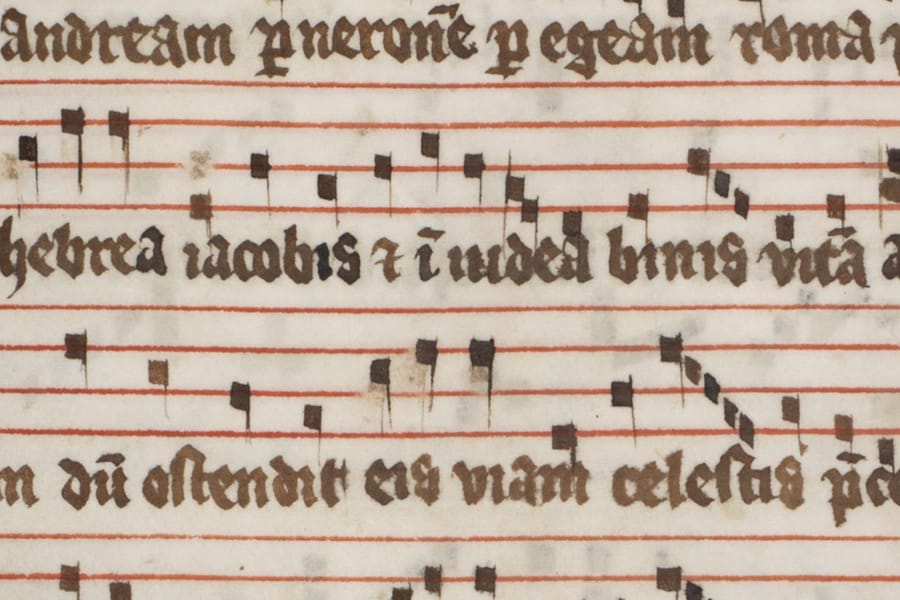 andream ꝑ neron̄e ꝑ egeam roma
hebrea iacobis ⁊ ī iudea binis vitā a
m dū ostendit eis viam celestis p̄c